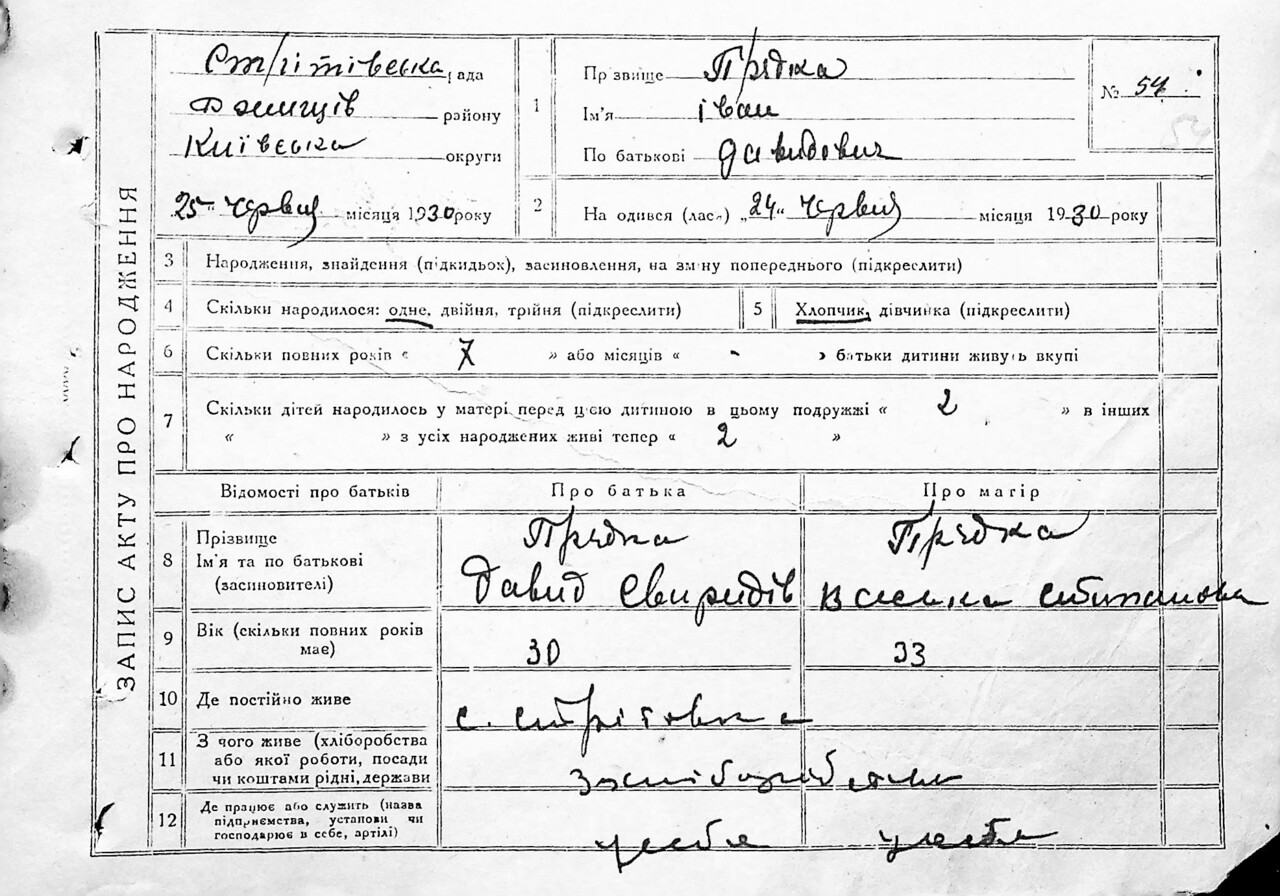 ЗАПИС АКТУ ПРО НАРОДЖЕННЯ
Стрітівська рада
району
Київська округи
25 червня місяця 1930 року
1
Прізвище Прядка
Ім'я Іван
По батькові Давидович
№ 54
2
Народився (лася) „24“ червня місяця 1930 року
3 Народження, знайдення (підкидьок), засиновлення, на зміну попереднього (підкреслити)
4 Скільки народилося: одне, двійня, трійня (підкреслити)
5 Хлопчик, дівчинка (підкреслити)
6 Скільки повних років « 7 » або місяців « - » батьки дитини живуть вкупі
7 Скільки дітей народилось у матері перед цією дитиною в цьому подружжі « 2 » в інших
« » з усіх народжених живі тепер « 2 »
Відомості про батьків Про батька Про матір
8 Прізвище
Ім'я та по батькові
(засиновителі)
Прядка Прядка
Давид Свиридів Степанова
9 Вік (скільки повних років
має)
30 33
10 Де постійно живе
с. Стрітовка
11 З чого живе (хліборобства
або якої роботи, посади
чи коштами рідні, держави
З хліборобства
12 Де працює або служить (назва
підприємства, установи чи
господарює в себе, артілі)
у себе у себе